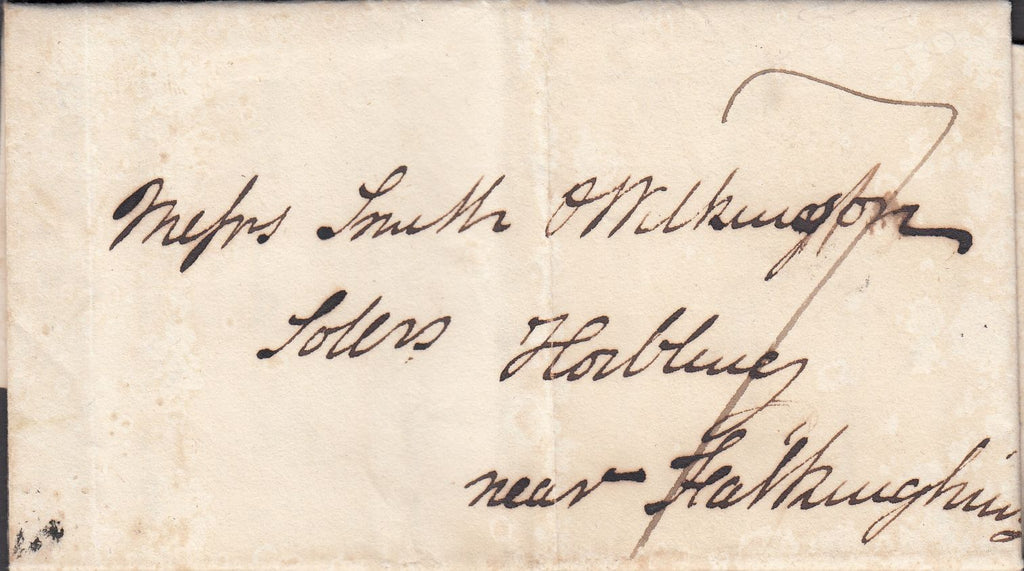 Messrs Smith & Wilkington
Solrs Horbling
near Falkingham
7